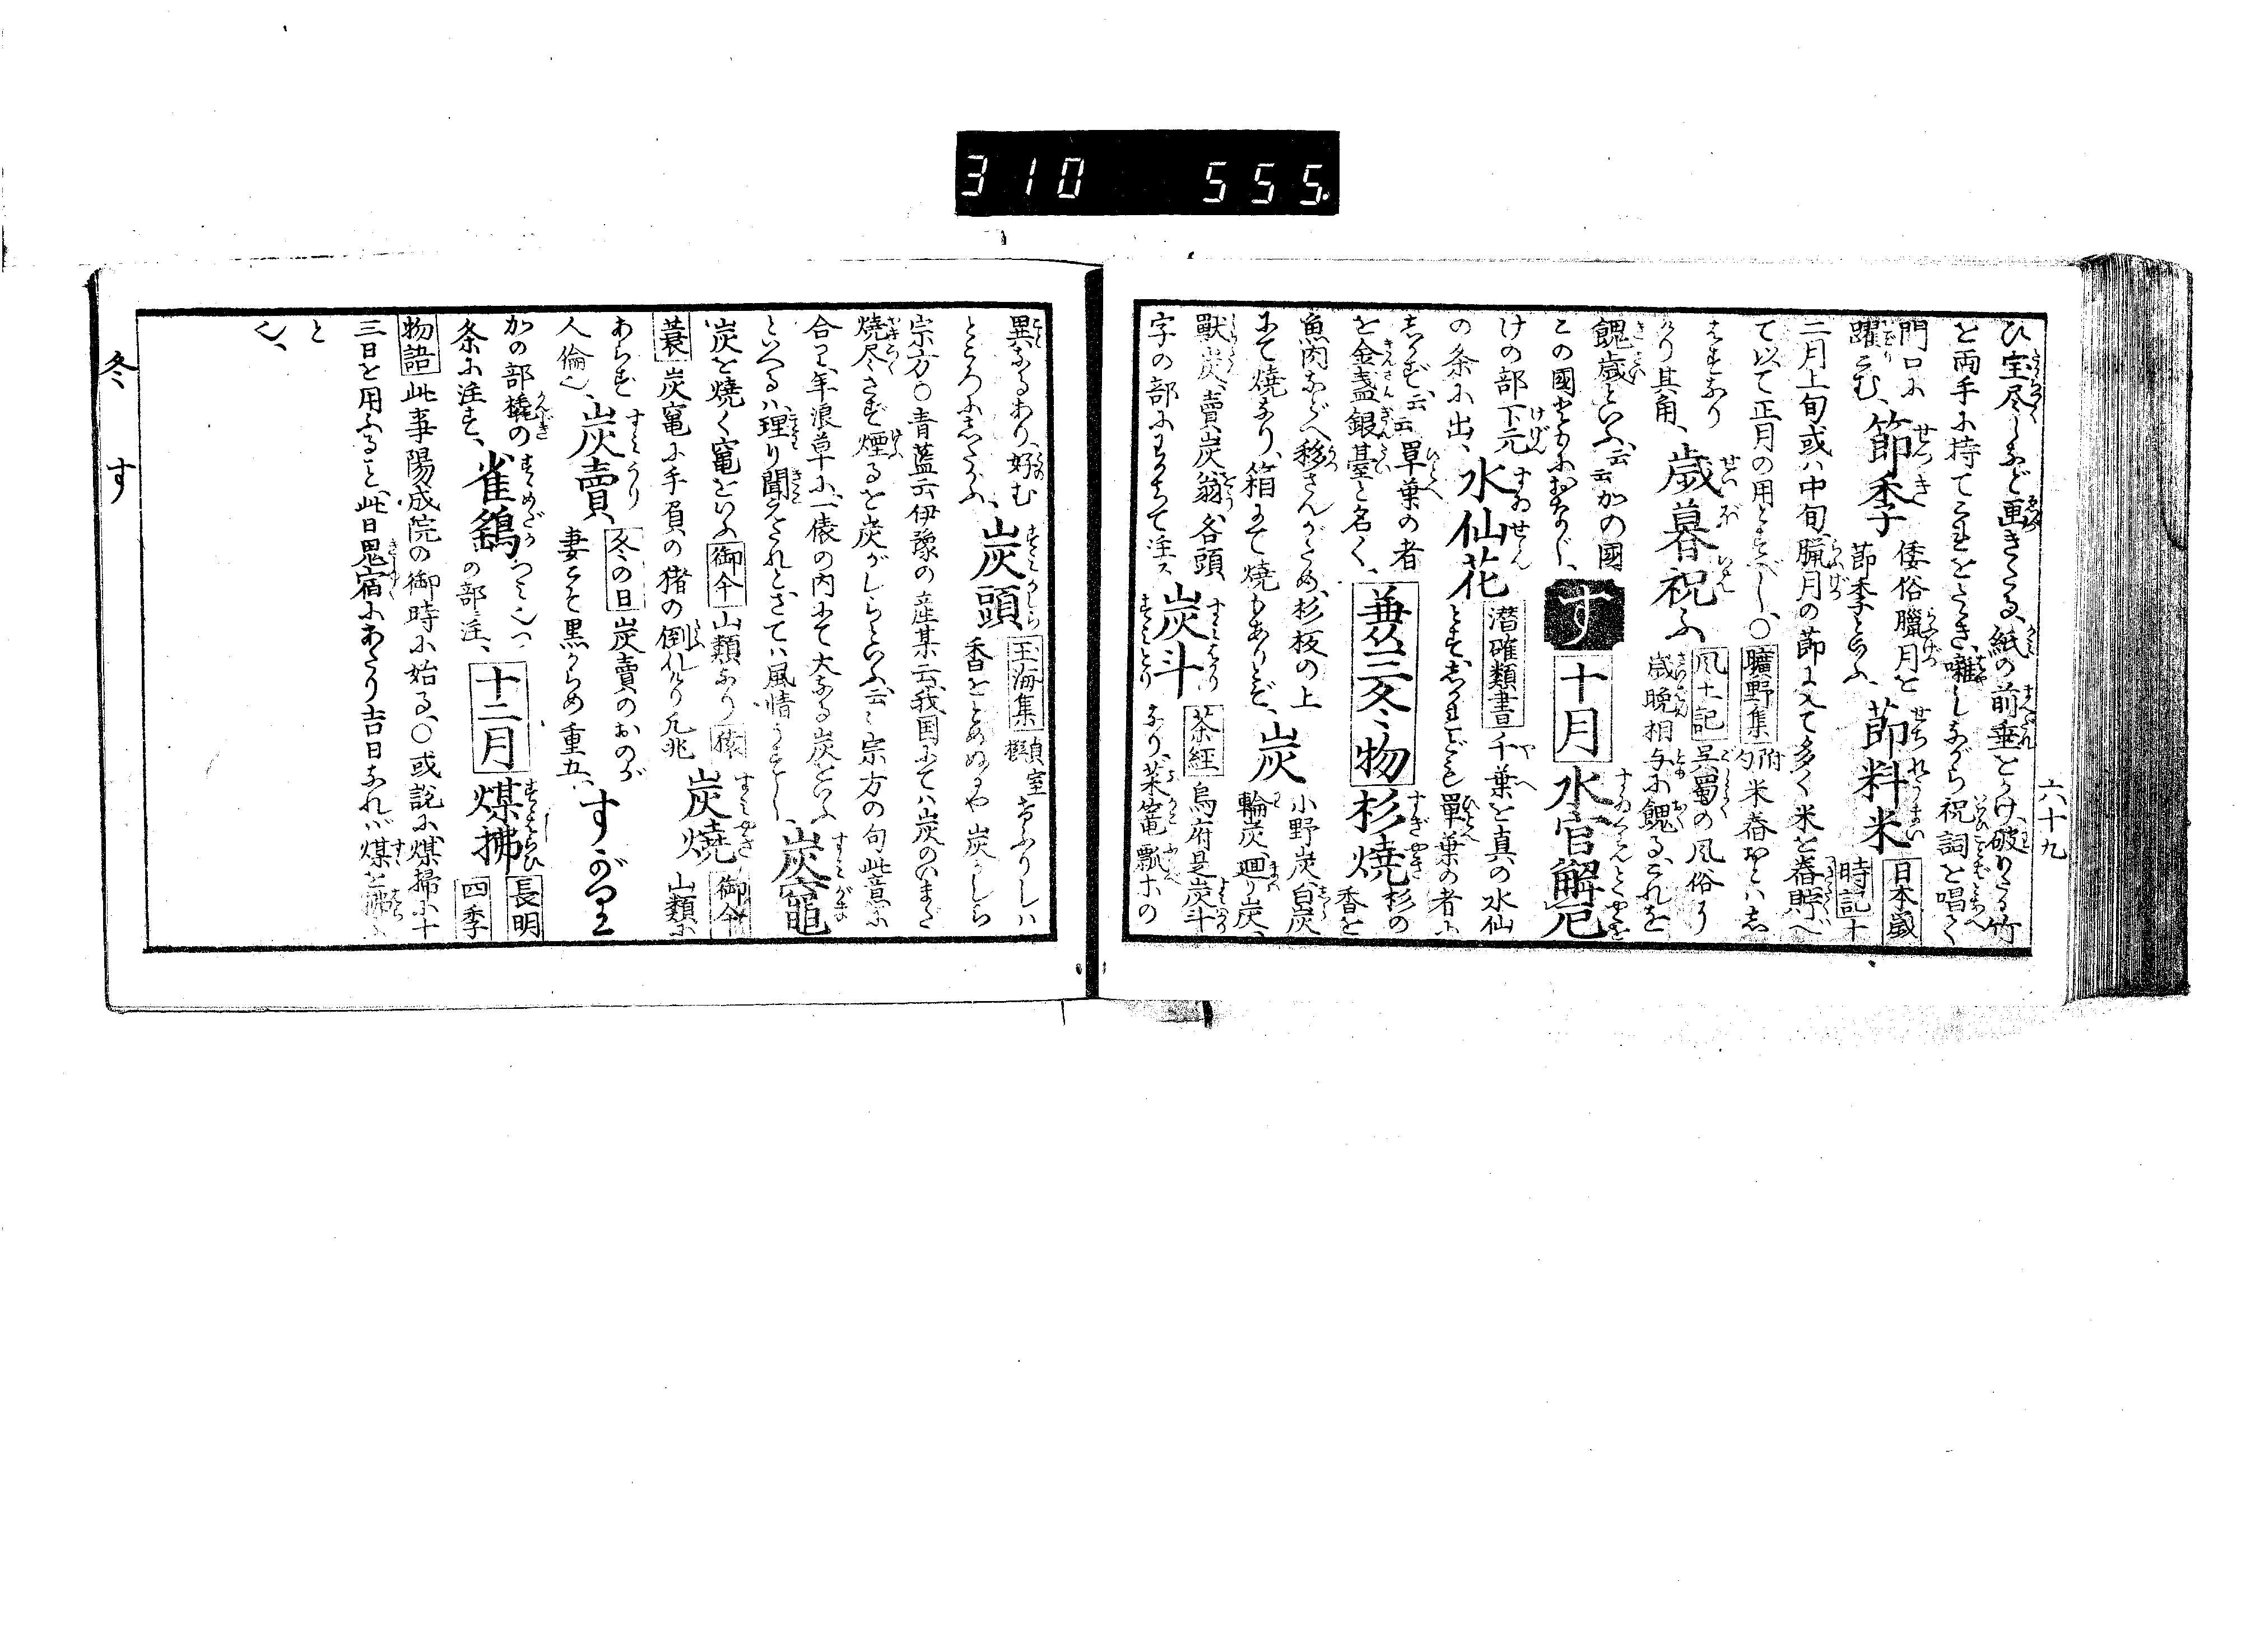 310 555
六十九
ひ宝尽しなど画きたる、紙の前垂をかけ、破りたる竹
を両手に持てこれをたゝき、囃しながら祝詞を唱て
門口に
躍こむ、節季 倭俗臘月を節季といふ、節料米 日本歳時記 十
二月上旬或ハ中旬、臘月の節に入て多く米を舂貯べ
て以て正月の用とすべし、〇曠野集 附句 米舂おとハ志
はすなり
けり其角、歳暮祝ふ 風土記 呉蜀の風俗
歳晩相与に餽る、これを
餽歳といふ、云云かの國
この國ともにおなじ、す 十月 水官解厄
けの部下元
の条に出、水仙花 潜確類書 千葉を真の水仙
とす、志かれども單葉の者に
志かず、云云單葉の者
を金盞銀臺と名く、兼三冬物 杉焼 杉の香を
魚肉などへ移さんがため、杉板の上
にて焼なり、箱にて焼もありとぞ、炭 小野炭、白炭
輪炭、廻り炭、
獸炭、賣炭翁、各頭
字の部にわかちて注ス 炭斗 茶経 烏府是炭斗
なり、菜篭瓢ホの
異なるあり、好む
ところに志たがふ、炭頭 玉海集 貞室
香をとめぬるや炭がしら
宗方〇青藍云伊豫の産某云、我国にてハ炭のいまだ
焼尽さず煙るを炭がしらといふ、云〻宗方の句此意に
合り、年浪草に一俵の内にて大なる炭をいふ
といへるハ理り聞えたれど、さてハ風情うすし、炭竈
炭を焼く竈をいふ 御傘 山類なり 猿
蓑 炭竃に手負の猪の倒れけり凡兆 炭焼 御傘 山類に
あらず
人倫也、炭賣 冬の日 炭賣のおのが
妻こそ黒からめ重五、すがり
かの部樏の
条に注す、雀鷂 つミ也つ
の部注、十二月 煤拂 長明四季
物語 此事陽成院の御時に始る、〇或説に煤掃に十
三日を用ふること、此日鬼宿にあたり吉日なれバ煤を拂ふ
と
也、
冬 す